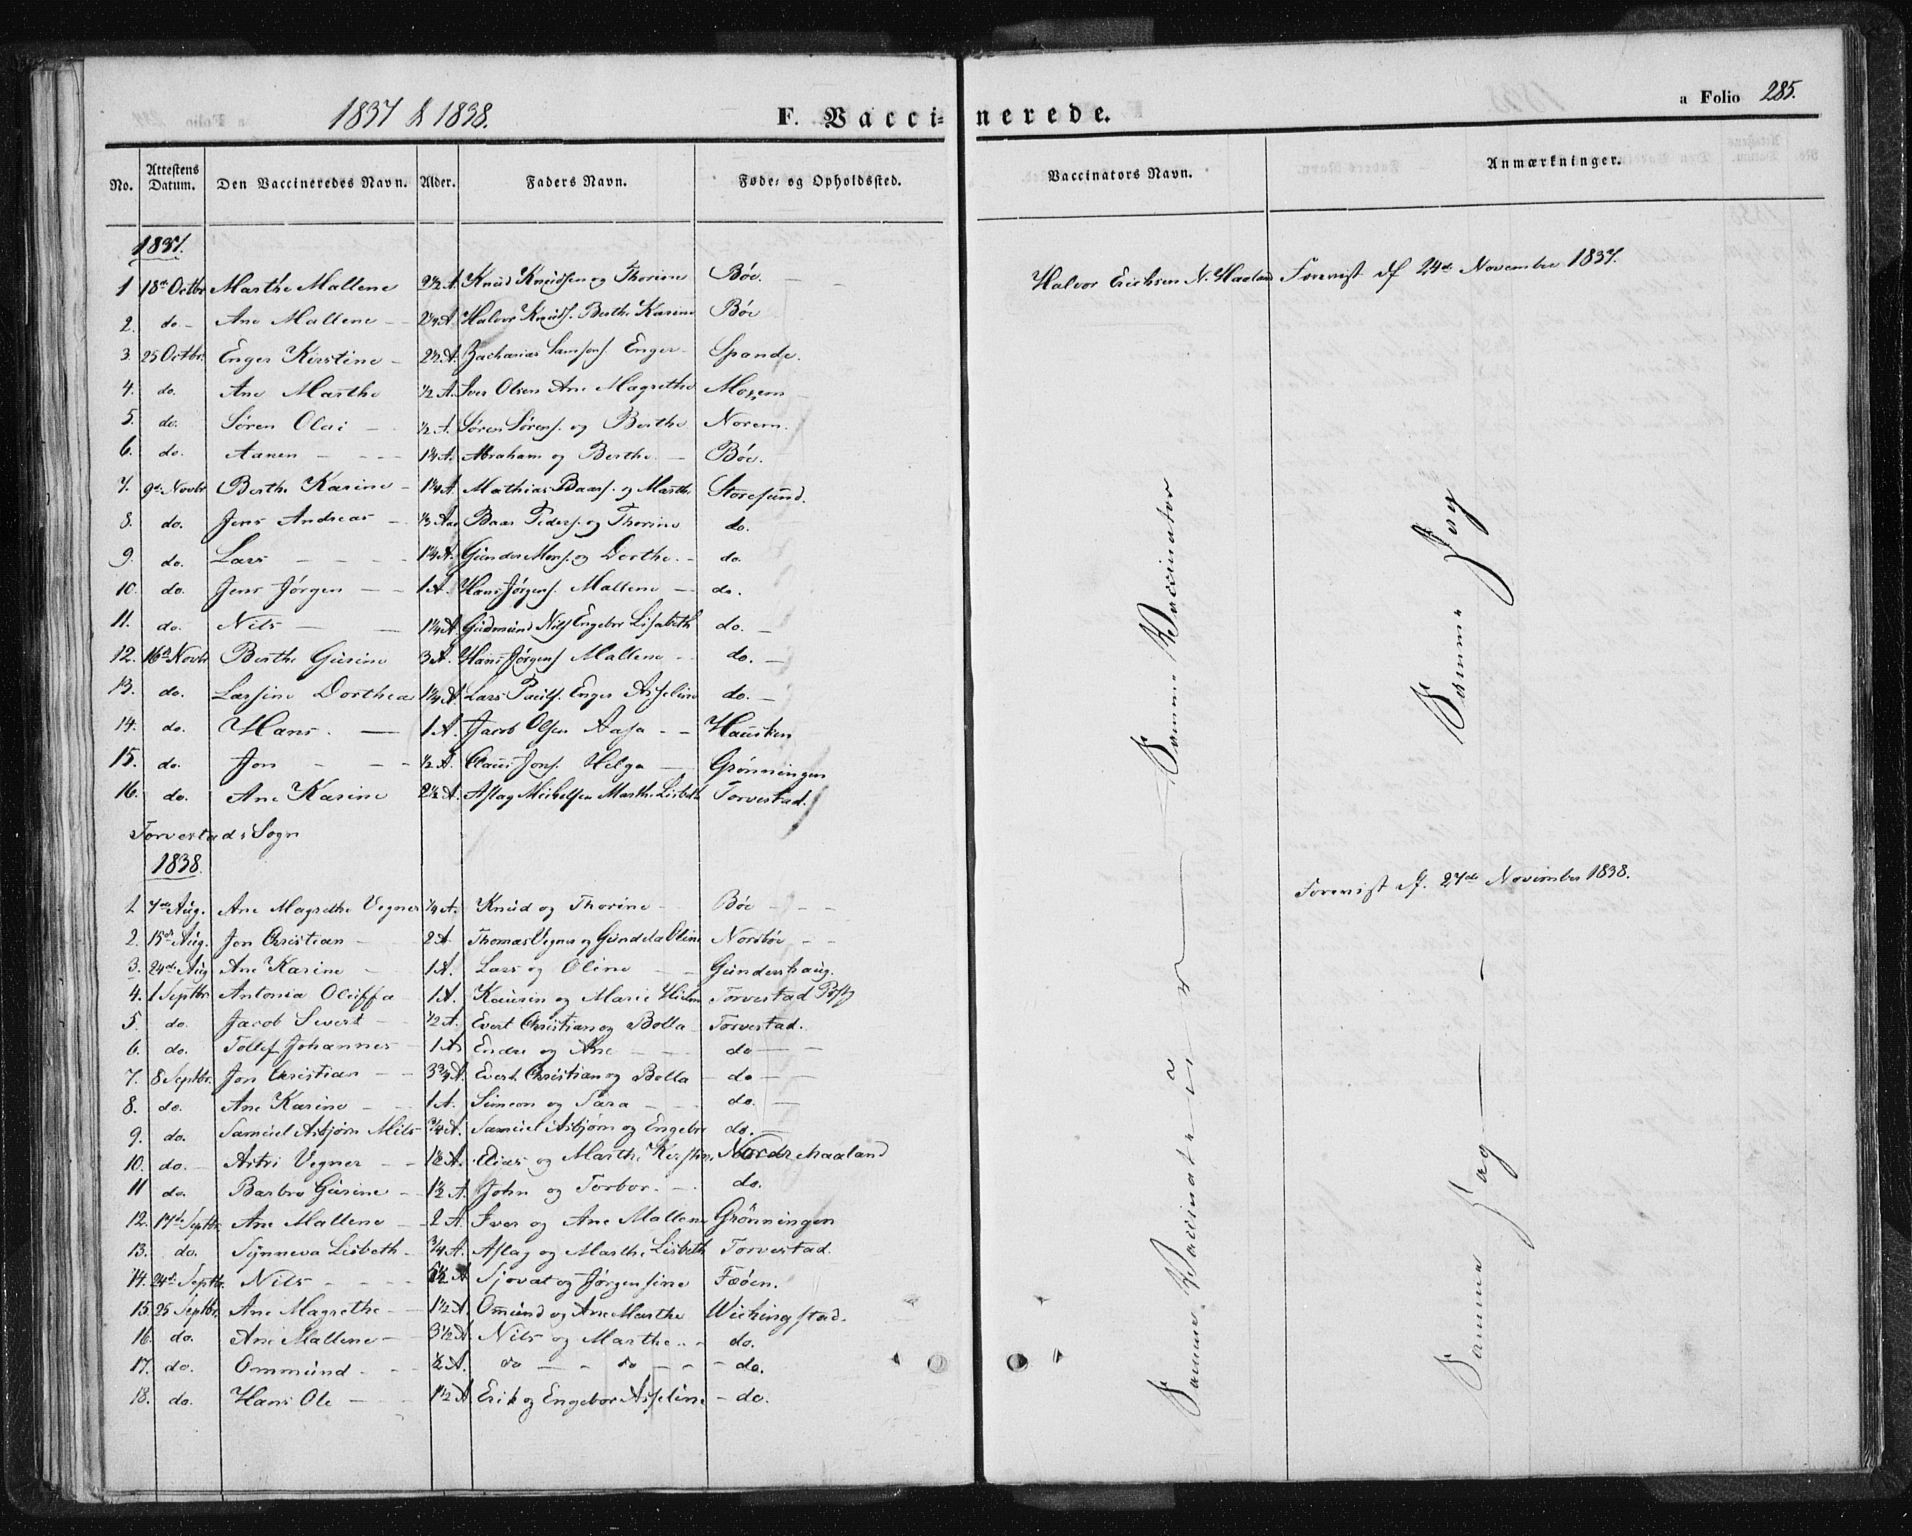 1837 & 1838. F. Vaccinerede. a Folio 285.
No. Attestens Datum. Den Vaccineredes Navn. Alder. Faders Navn. Føde- og Opholdssted. Vaccinators Navn. Anmærkninger.
1837.
1 18de Octbr Marthe Mallene 2½ A. Knud Knudsen og Thorine Böe. Halvor Erichsen N. Haaland Forevist d 24de November 1837.
2. do - Ane Mallene 2¼ A. Halvor Knuds. Berthe Karine Böe
3. 25 Octbr. Enger Kirstine 2½ A. Zacharias Samsons. Enger Spande.
4. do. Ane Marthe ½ A. Iver Olsen Ane Magrethe
5. do. Sören Olai ½ A. Sören Sörens. og Berthe Norem.
6. do. Aanen 1¼ A. Abraham og Berthe Böe.
7. 9de Novbr Berthe Karine 1¼ A. Mathias Baars. og Marthe Storesund.
8. do. Jens Andreas ⅓ Aar Baar Peders. og Thorine do.
9. do. Lars 1¼ A. Gunder Mons. og Dorthe do.
10. do. Jens Jörgen 1 A. Hans Jörgens. Mallene do.
11. do. Nils 1¼ A Gudmund Nils. Engebor Lisabeth do.
12. 16de Novbr Berthe Gurine 3 A. Hans Jörgens. Mallene do.
13. do. Larsine Dorthea 1¼ A Lars Pauls. Enger Asseline do.
14. do. Hans 1 A. Jacob Olsen Aasa Hausken
15. do. Jon ½ A. Claus Jons. Helga Grönningen
16. do. Ane Karine 2½ A. Aslag Michelsen Marthe Lisbeth Torvestad.
Samme Vaccinator
Samme Dag
Torvestads Sogn
1838.
1 7de Aug. Ane Magrethe Vegner ¼ A. Knud og Thorine Böe
2. 15de Aug. Jon Christian 2 A. Thomas Vegner og Gundela Oline Nordböe
3. 24de Aug Ane Karine 1 A. Lars og Oline Gundershaug.
4. 1 Septbr. Antonia Oluffa 1 A. Kaurin og Marie Torvestad
5. do. Jacob Severt ½ A. Evert Christian og Bolla Torvestad.
6. do. Tollef Johannes 1 A. Endre og Ane do
7. 8 Septbr. Jon Christian 3¾ A. Evert Christian og Bolla do
8. do. Ane Karine 1 A. Simeon og Sara do.
9. do. Samuel Asbjörn Mils ¾ A. Samuel Asbjörn og Engebor do.
10. do. Astri Vegner 1½ A. Elias og Marthe Kirstine Nordre Haaland
11 do. Barbro Gurine 1½ A. John og Torbor do.
12. 17de Septbr. Ane Mallene 2 A. Iver og Ane Mallene Grönningen
13. do. Synneva Lisbeth ¾ A. Aslag og Marthe Lisbeth Torvestad.
14. 24de Septbr. Nils ½ A Sjovat og Jörgensine Fæöen.
15 25 Septbr. Ane Magrethe 1½ A. Omund og Ane Marthe Wichingstad.
16. do. Ane Mallene 3½ A. Nils og Marthe do.
17. do. Ommund ½ A. do do do.
18. do. Hans Ole 1½ A. Erik og Engebor Asseline do.
Forevist d. 27de November 1838.
Samme Vaccinateur
Samme Dag